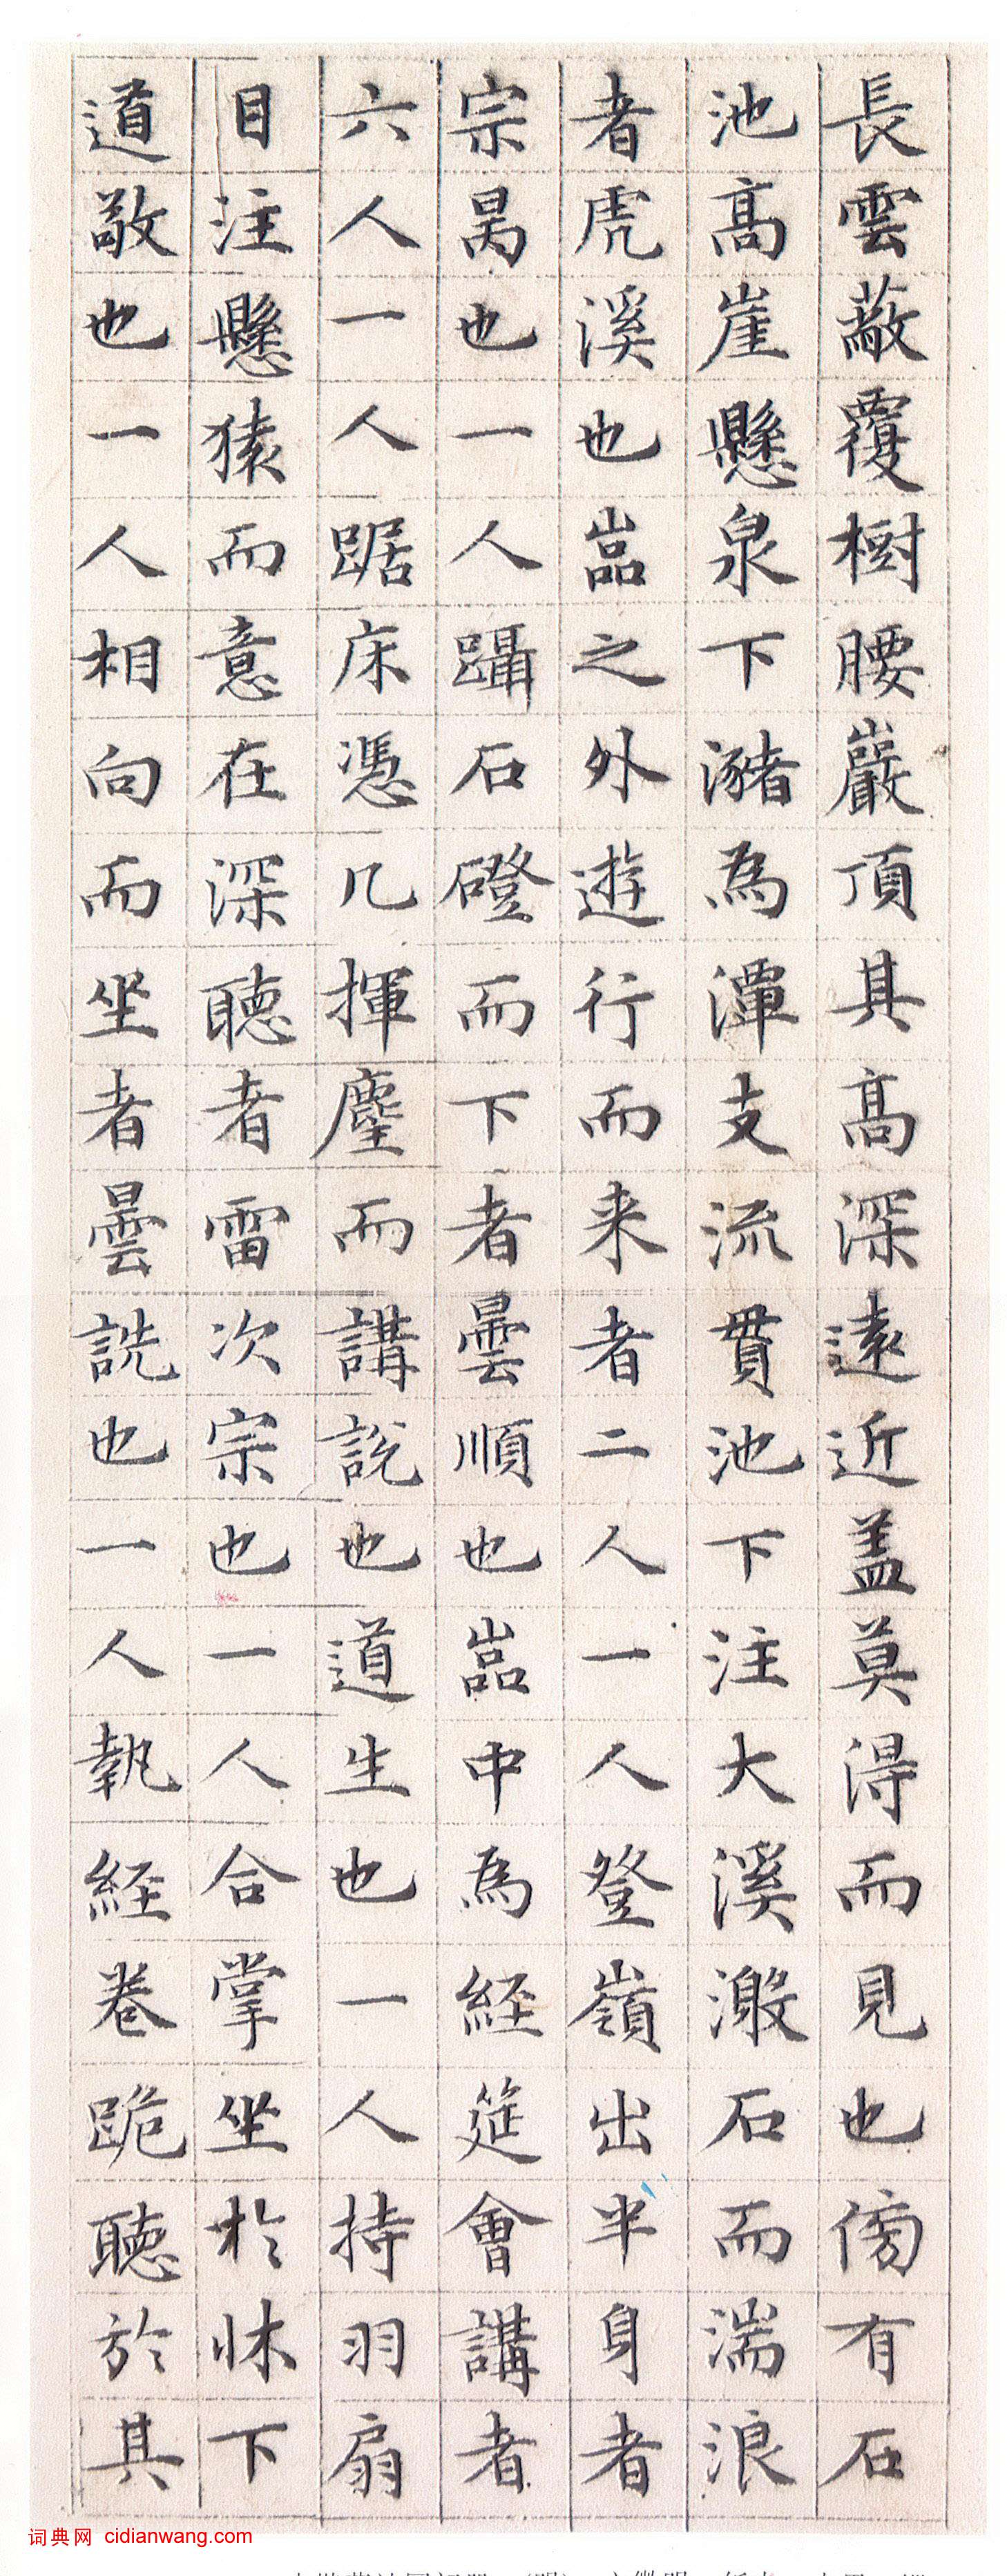 長雲蔽覆樹腰巖頂其高深遠近盖莫得而見也傍有石
池高崖懸泉下瀦為潭支流貫池下注大溪激石而湍浪
者虎溪也嵓之外遊行而来者二人一人登嶺出半身者
宗昺也一人躡石磴而下者曇順也嵓中為経筵會講者
六人一人踞床憑几揮麈而講說也道生也一人持羽扇
目注懸猿而意在深聽者雷次宗也一人合掌坐於牀下
道敬也一人相向而坐者曇詵也一人執経卷跪聽於其
词典网 cidianwang.com